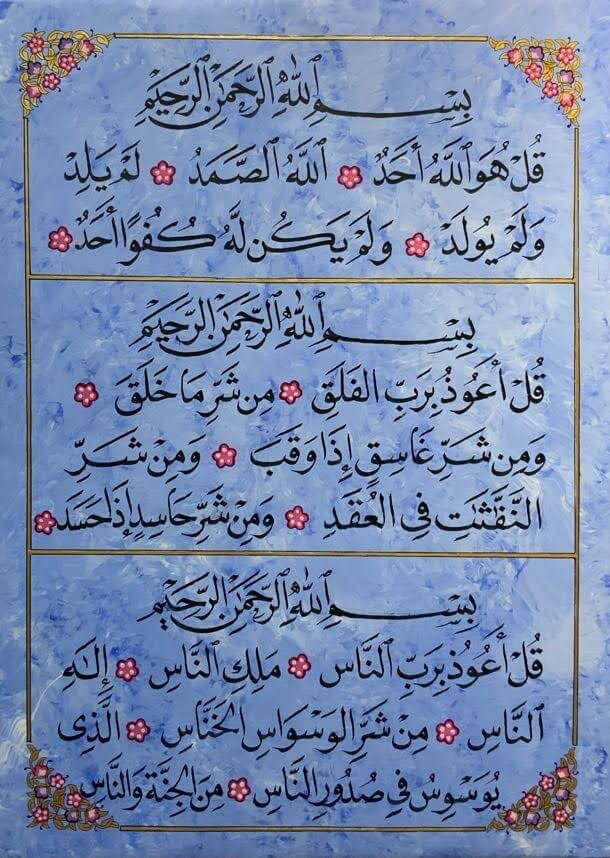 بِسْمِ ٱللَّهِ ٱلرَّحْمَٰنِ ٱلرَّحِيمِ
قُلْ هُوَ ٱللَّهُ أَحَدٌ ٱللَّهُ ٱلصَّمَدُ لَمْ يَلِدْ
وَلَمْ يُولَدْ وَلَمْ يَكُن لَّهُ كُفُوًا أَحَدٌ
بِسْمِ ٱللَّهِ ٱلرَّحْمَٰنِ ٱلرَّحِيمِ
قُلْ أَعُوذُ بِرَبِّ الفَلَقِ مِن شَرِّ مَا خَلَقَ
وَمِن شَرِّ غَاسِقٍ إِذَا وَقَبَ وَمِن شَرِّ
النَّفَّٰثَٰتِ فِى العُقَدِ وَمِن شَرِّ حَاسِدٍ إِذَا حَسَدَ
بِسْمِ ٱللَّهِ ٱلرَّحْمَٰنِ ٱلرَّحِيمِ
قُلْ أَعُوذُ بِرَبِّ ٱلنَّاسِ مَلِكِ ٱلنَّاسِ إِلَٰهِ
ٱلنَّاسِ مِن شَرِّ الوَسْوَاسِ الخَنَّاسِ الَّذِى
يُوَسْوِسُ فِى صُدُورِ النَّاسِ مِنَ الجِنَّةِ وَالنَّاسِ